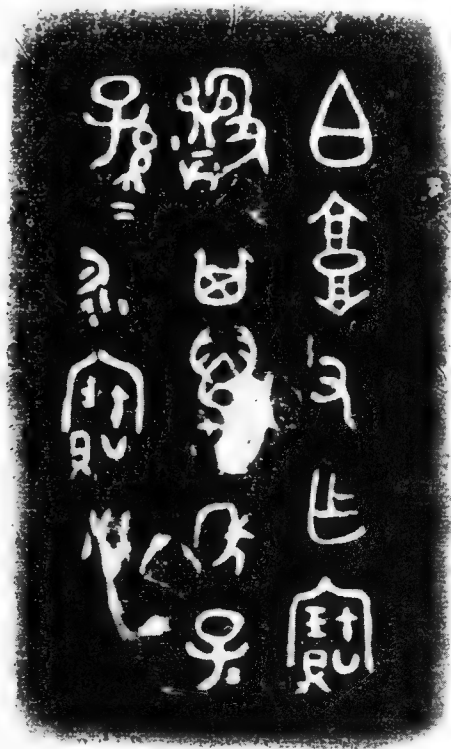 白𩫏父乍寶
其萬年子
孫＝永寶用